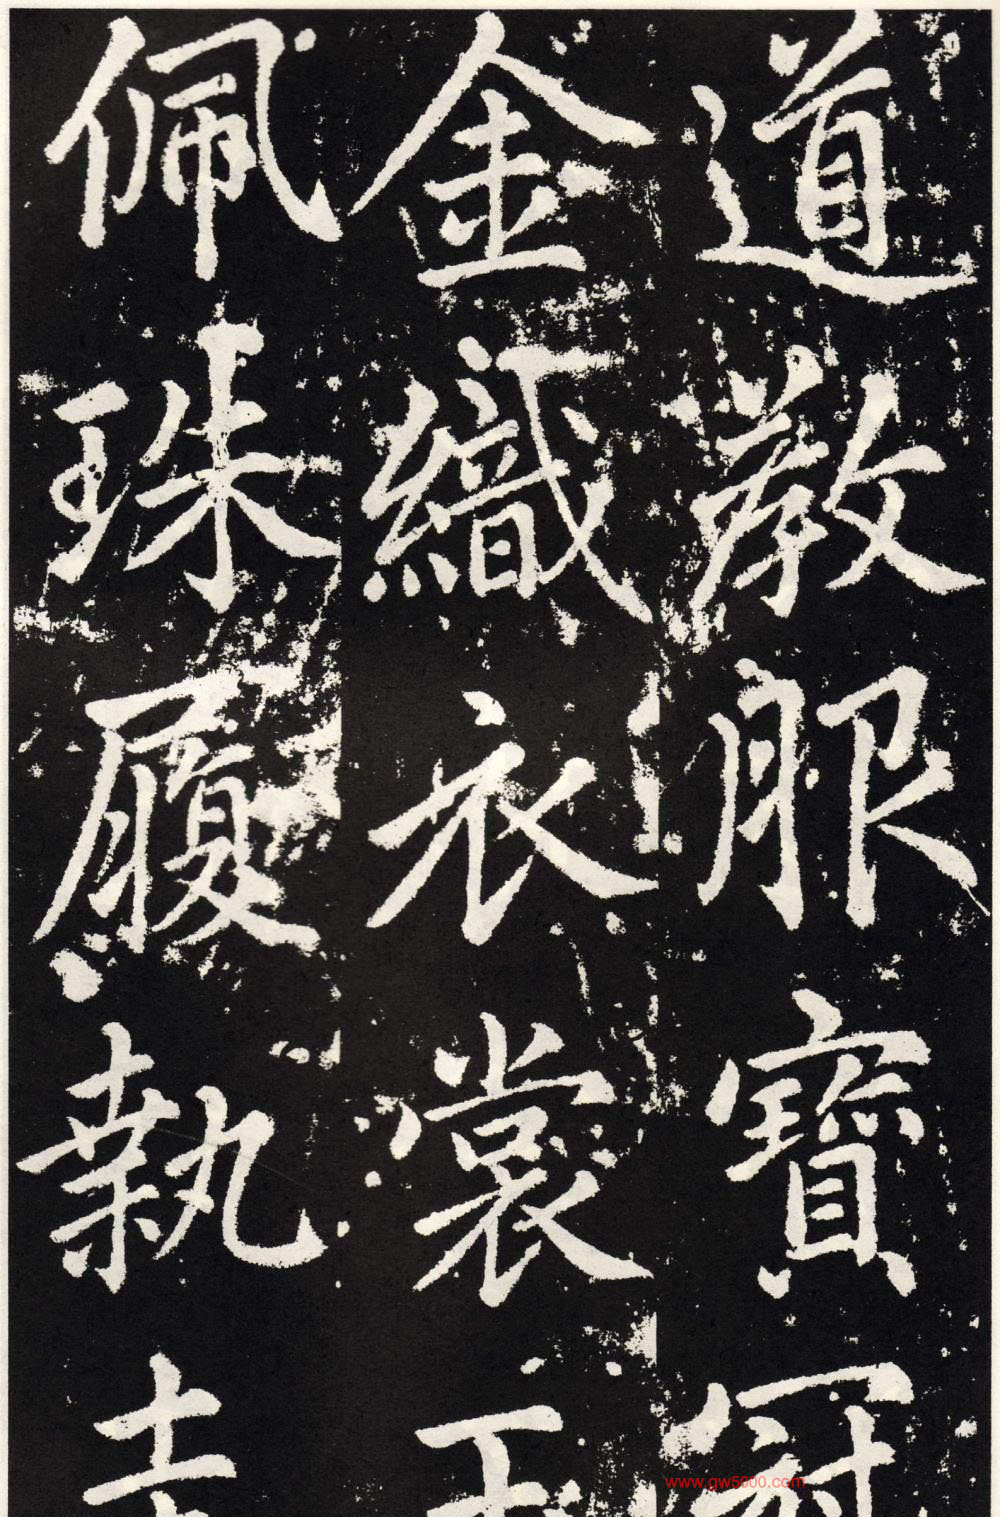 道教服寶冠
金織衣裳玉
佩珠履執
www.gw5000.com